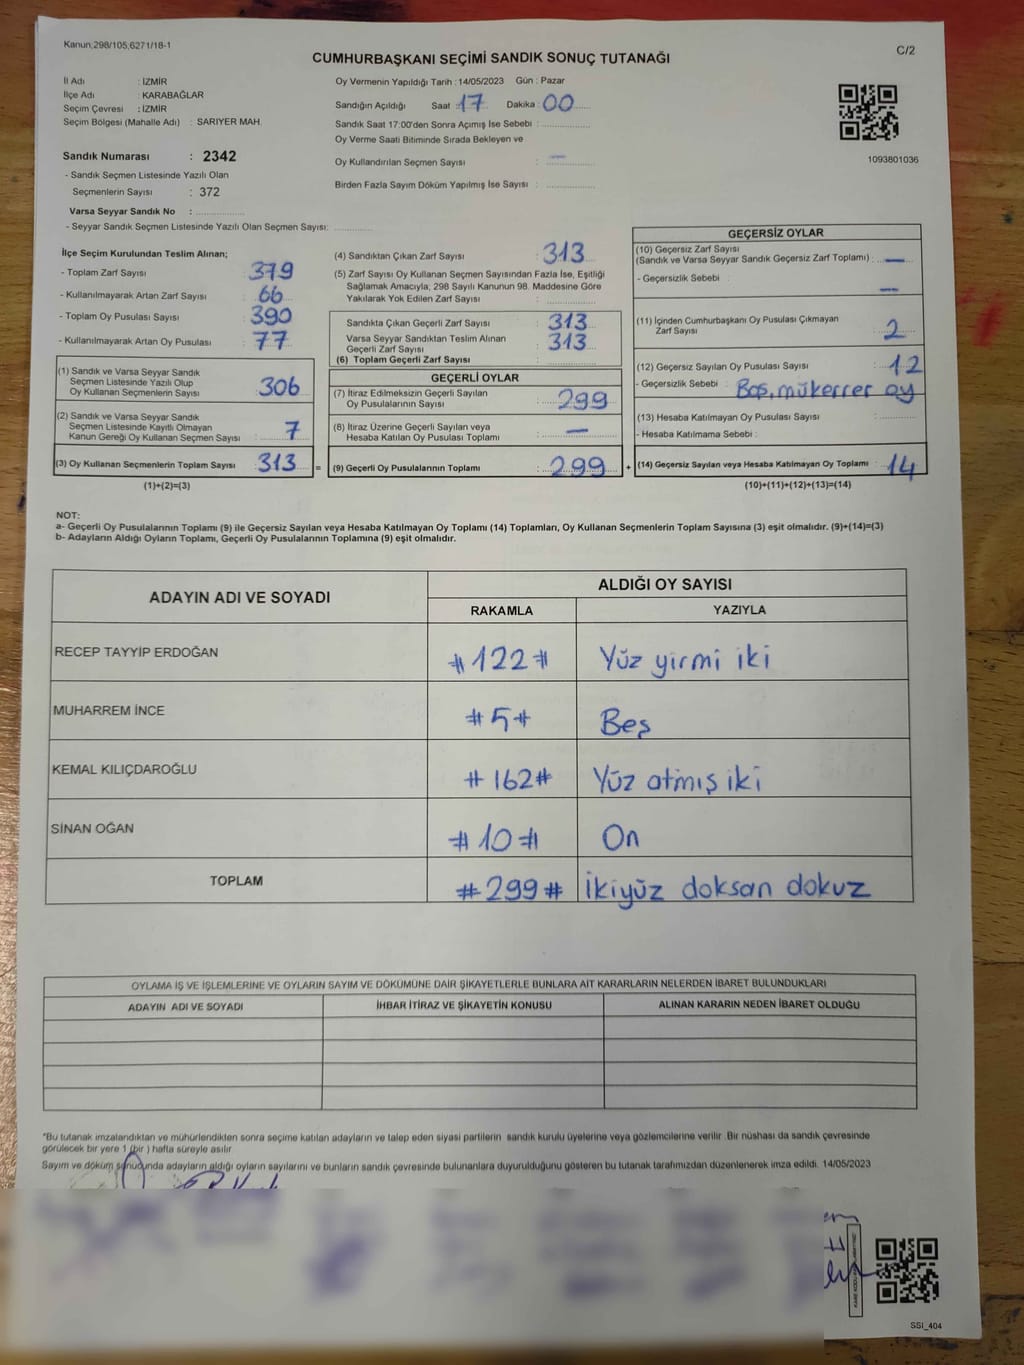 Kanun;298/105,6271/18-1
C/2
CUMHURBAŞKANI SEÇİMİ SANDIK SONUÇ TUTANAĞI
İl Adı : İZMİR
İlçe Adı : KARABAĞLAR
Seçim Çevresi : İZMİR
Seçim Bölgesi (Mahalle Adı) : SARIYER MAH.
Sandık Numarası : 2342
- Sandık Seçmen Listesinde Yazılı Olan
Seçmenlerin Sayısı : 372
Varsa Seyyar Sandık No :
- Seyyar Sandık Seçmen Listesinde Yazılı Olan Seçmen Sayısı:
Oy Vermenin Yapıldığı Tarih : 14/05/2023 Gün : Pazar
Sandığın Açıldığı Saat : 17 Dakika : 00
Sandık Saat 17:00'den Sonra Açımış İse Sebebi :
Oy Verme Saati Bitiminde Sırada Bekleyen ve
Oy Kullandırılan Seçmen Sayısı : —
Birden Fazla Sayım Döküm Yapılmış İse Sayısı :
1093801036
İlçe Seçim Kurulundan Teslim Alınan;
- Toplam Zarf Sayısı 379
- Kullanılmayarak Artan Zarf Sayısı : 66
- Toplam Oy Pusulası Sayısı : 390
- Kullanılmayarak Artan Oy Pusulası : 77
(1) Sandık ve Varsa Seyyar Sandık
Seçmen Listesinde Yazılı Olup
Oy Kullanan Seçmenlerin Sayısı : 306
(2) Sandık ve Varsa Seyyar Sandık
Seçmen Listesinde Kayıtlı Olmayan
Kanun Gereği Oy Kullanan Seçmen Sayısı : 7
(3) Oy Kullanan Seçmenlerin Toplam Sayısı : 313
(1)+(2)=(3)
=
(4) Sandıktan Çıkan Zarf Sayısı : 313
(5) Zarf Sayısı Oy Kullanan Seçmen Sayısından Fazla İse, Eşitliği
Sağlamak Amacıyla; 298 Sayılı Kanunun 98. Maddesine Göre
Yakılarak Yok Edilen Zarf Sayısı :
Sandıkta Çıkan Geçerli Zarf Sayısı : 313
Varsa Seyyar Sandıktan Teslim Alınan
Geçerli Zarf Sayısı : 313
(6) Toplam Geçerli Zarf Sayısı :
GEÇERLİ OYLAR
(7) İtiraz Edilmeksizin Geçerli Sayılan
Oy Pusulalarının Sayısı : 299
(8) İtiraz Üzerine Geçerli Sayılan veya
Hesaba Katılan Oy Pusulası Toplamı : —
(9) Geçerli Oy Pusulalarının Toplamı : 299
+
GEÇERSİZ OYLAR
(10) Geçersiz Zarf Sayısı
(Sandık ve Varsa Seyyar Sandık Geçersiz Zarf Toplamı) : —
- Geçersizlik Sebebi : —
(11) İçinden Cumhurbaşkanı Oy Pusulası Çıkmayan
Zarf Sayısı : 2
(12) Geçersiz Sayılan Oy Pusulası Sayısı : 12
- Geçersizlik Sebebi : Boş, mükerrer oy
(13) Hesaba Katılmayan Oy Pusulası Sayısı :
- Hesaba Katılmama Sebebi :
(14) Geçersiz Sayılan veya Hesaba Katılmayan Oy Toplamı : 14
(10)+(11)+(12)+(13)=(14)
NOT:
a- Geçerli Oy Pusulalarının Toplamı (9) ile Geçersiz Sayılan veya Hesaba Katılmayan Oy Toplamı (14) Toplamları, Oy Kullanan Seçmenlerin Toplam Sayısına (3) eşit olmalıdır. (9)+(14)=(3)
b- Adayların Aldığı Oyların Toplamı, Geçerli Oy Pusulalarının Toplamına (9) eşit olmalıdır.
ADAYIN ADI VE SOYADI
ALDIĞI OY SAYISI
RAKAMLA YAZIYLA
RECEP TAYYİP ERDOĞAN #122# Yüz yirmi iki
MUHARREM İNCE #5# Beş
KEMAL KILIÇDAROĞLU #162# Yüz atmış iki
SİNAN OĞAN #10# On
TOPLAM #299# İkiyüz doksan dokuz
OYLAMA İŞ VE İŞLEMLERİNE VE OYLARIN SAYIM VE DÖKÜMÜNE DAİR ŞİKAYETLERLE BUNLARA AİT KARARLARIN NELERDEN İBARET BULUNDUKLARI
ADAYIN ADI VE SOYADI İHBAR İTİRAZ VE ŞİKAYETİN KONUSU ALINAN KARARIN NEDEN İBARET OLDUĞU
*Bu tutanak imzalandıktan ve mühürlendikten sonra seçime katılan adayların ve talep eden siyasi partilerin sandık kurulu üyelerine veya gözlemcilerine verilir. Bir nüshası da sandık çevresinde
görülecek bir yere 1 (bir ) hafta süreyle asılır
Sayım ve döküm sonucunda adayların aldığı oyların sayılarını ve bunların sandık çevresinde bulunanlara duyurulduğunu gösteren bu tutanak tarafımızdan düzenlenerek imza edildi. 14/05/2023
SSİ_404